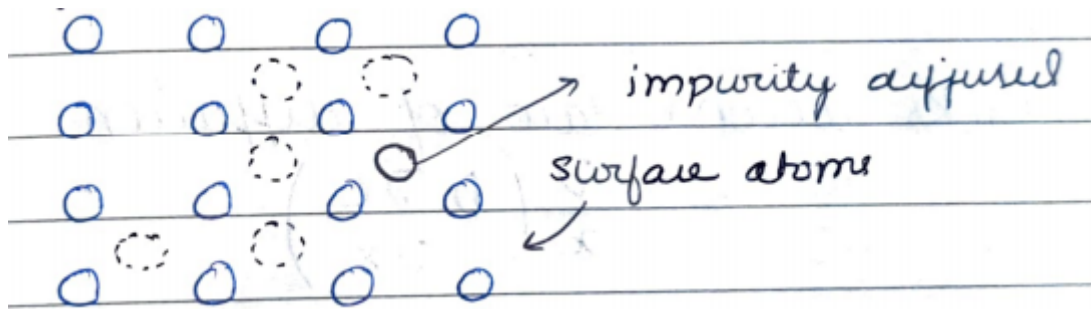 impurity diffused
surface atoms